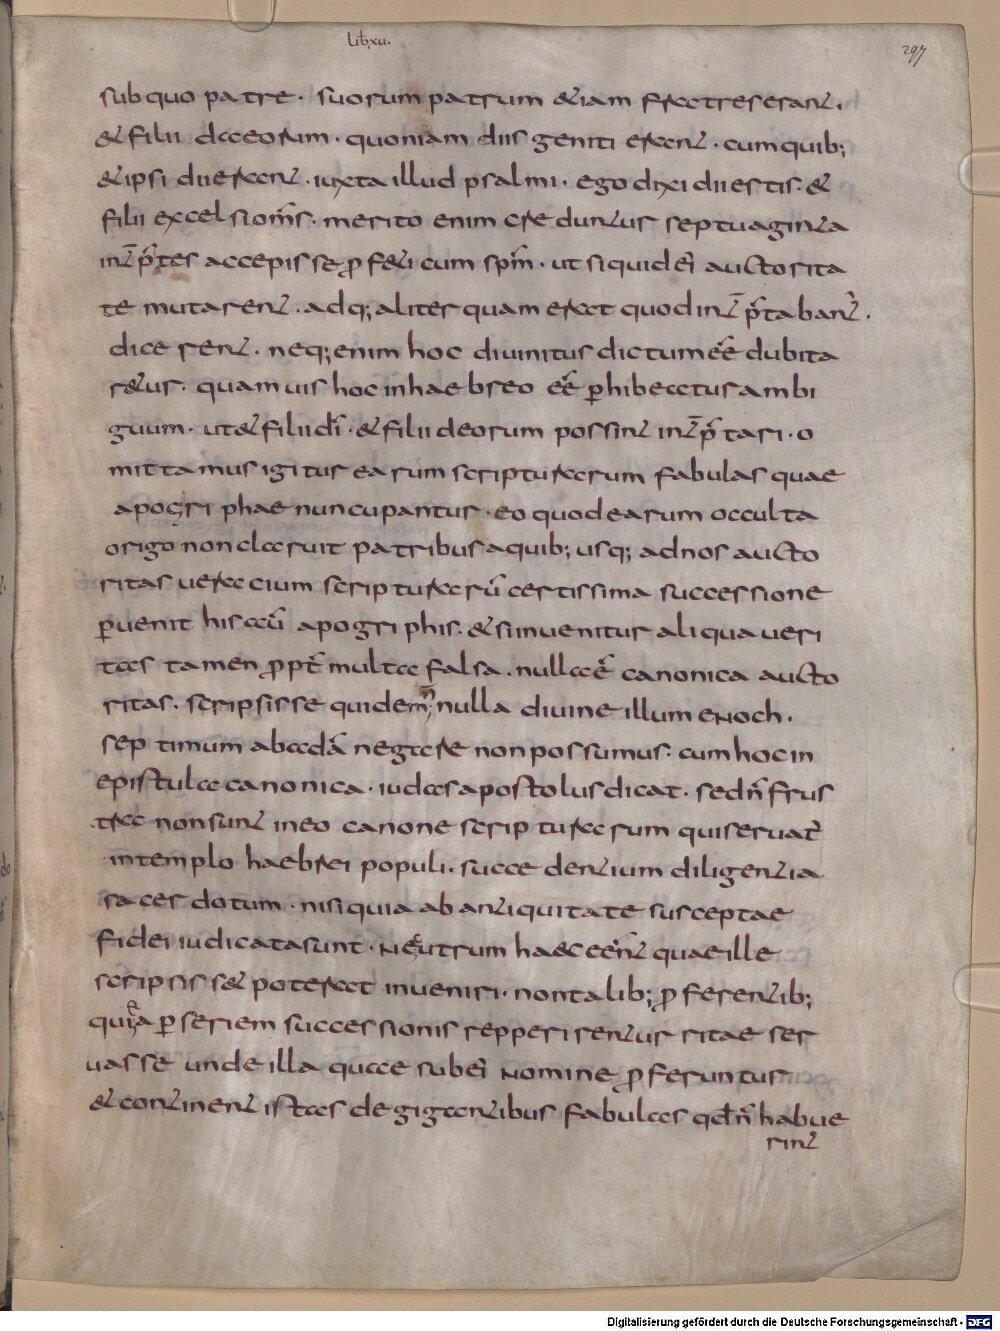 Lib xu.
297
sub quo patre · suorum patrum &iam fratres erant ·
& filii deorum · quoniam diis geniti erant · cum quib;
& ipsi dii erant · iuxta illud psalmi · ego dixi dii estis · &
filii excelsi om̄s · merito enim creduntur septuaginta
int̄ p̄tes accepisse ꝓf&icum sp̄m · ut si quid ei auctorita
te mutarent · adq; aliter quam erat quod int̄ p̄tabant ·
dicerent · neq; enim hoc diuinitus dictum eē̄ dubita
r&ur · quamuis hoc in haebreo eē̄ ꝑhibeatur ambi
guum · ut & filii dī · & filii deorum possint int̄ p̄tari · o
mittamus igitur earum scripturarum fabulas quae
apogriphae nuncupantur · eo quod earum occulta
origo non claruit patribus a quib; usq; ad nos aucto
ritas ueracium scripturarū certissima successione
ꝑuenit his aū apogriphis · & si inuenitur aliqua ueri
tas tamen ꝓpt̄ multa falsa · nulla ē̄ canonica aucto
ritas · scripsisse quidem nn̄ulla diuine illum enoch ·
septimum ab adā negare non possumus · cum hoc in
epistula canonica · iudas apostolus dicat · sed n̄ frus
tra non sunt in eo canone scripturarum qui seruat̄
in templo haebrei populi · succedentium diligentia
sacerdotum · nisi quia ab antiquitate susceptae
fidei iudicata sunt · nec utrum haec eēnt quae ille
scripsiss& poterat inueniri · non talib; ꝓferentib;
qui ea ꝑ seriem successionis repperirentur ritae ser
uasse unde illa quae sub ei nomine ꝓferuntur
& continent istas de gigantibus fabulas qd n̄ habue
rint
Digitalisierung gefördert durch die Deutsche Forschungsgemeinschaft - DFG